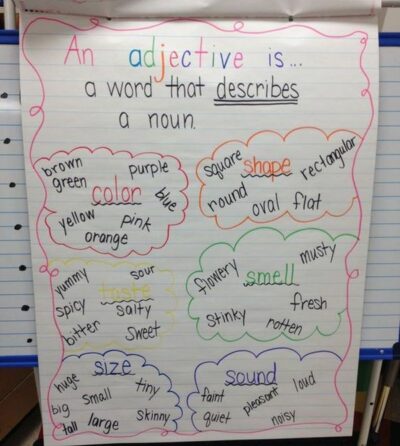 An adjective is...
a word that describes
a noun.
brown purple
green color blue
yellow pink
orange
square shape rectangular
round oval flat
yummy sour
taste
spicy salty
bitter sweet
flowery smell musty
fresh
stinky rotten
size
huge small tiny
big large skinny
tall
sound
faint pleasant loud
quiet noisy